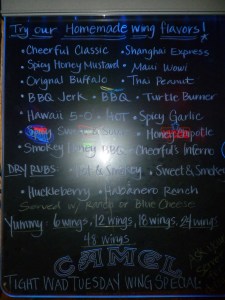 Try our Homemade wing flavors!
• Cheerful Classic • Shanghai Express
• Spicy Honey Mustard • Maui Wowi
• Original Buffalo • Thai Peanut
• BBQ Jerk • BBQ • Turtle Burner
• Hawaii 5-0 • HOT • Spicy Garlic
• Sweet & • Honey Chipotle
• Smokey Honey BBQ • Cheerful's Inferno
DRY RUBS: • Hot & Smokey • Sweet & Smokey
• Huckleberry • Habanero Ranch
Served w/ Ranch or Blue Cheese
Yummy • 6 wings, 12 wings, 18 wings, 24 wings
48 wings
CAMEL
TIGHT WAD TUESDAY WING SPECIAL